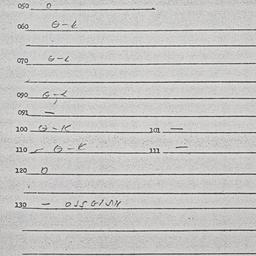 050 0
060 G-L
070 G-L
090 G-L
091 —
100 G-K 101 —
110 G-K 111 —
120 0
130 —